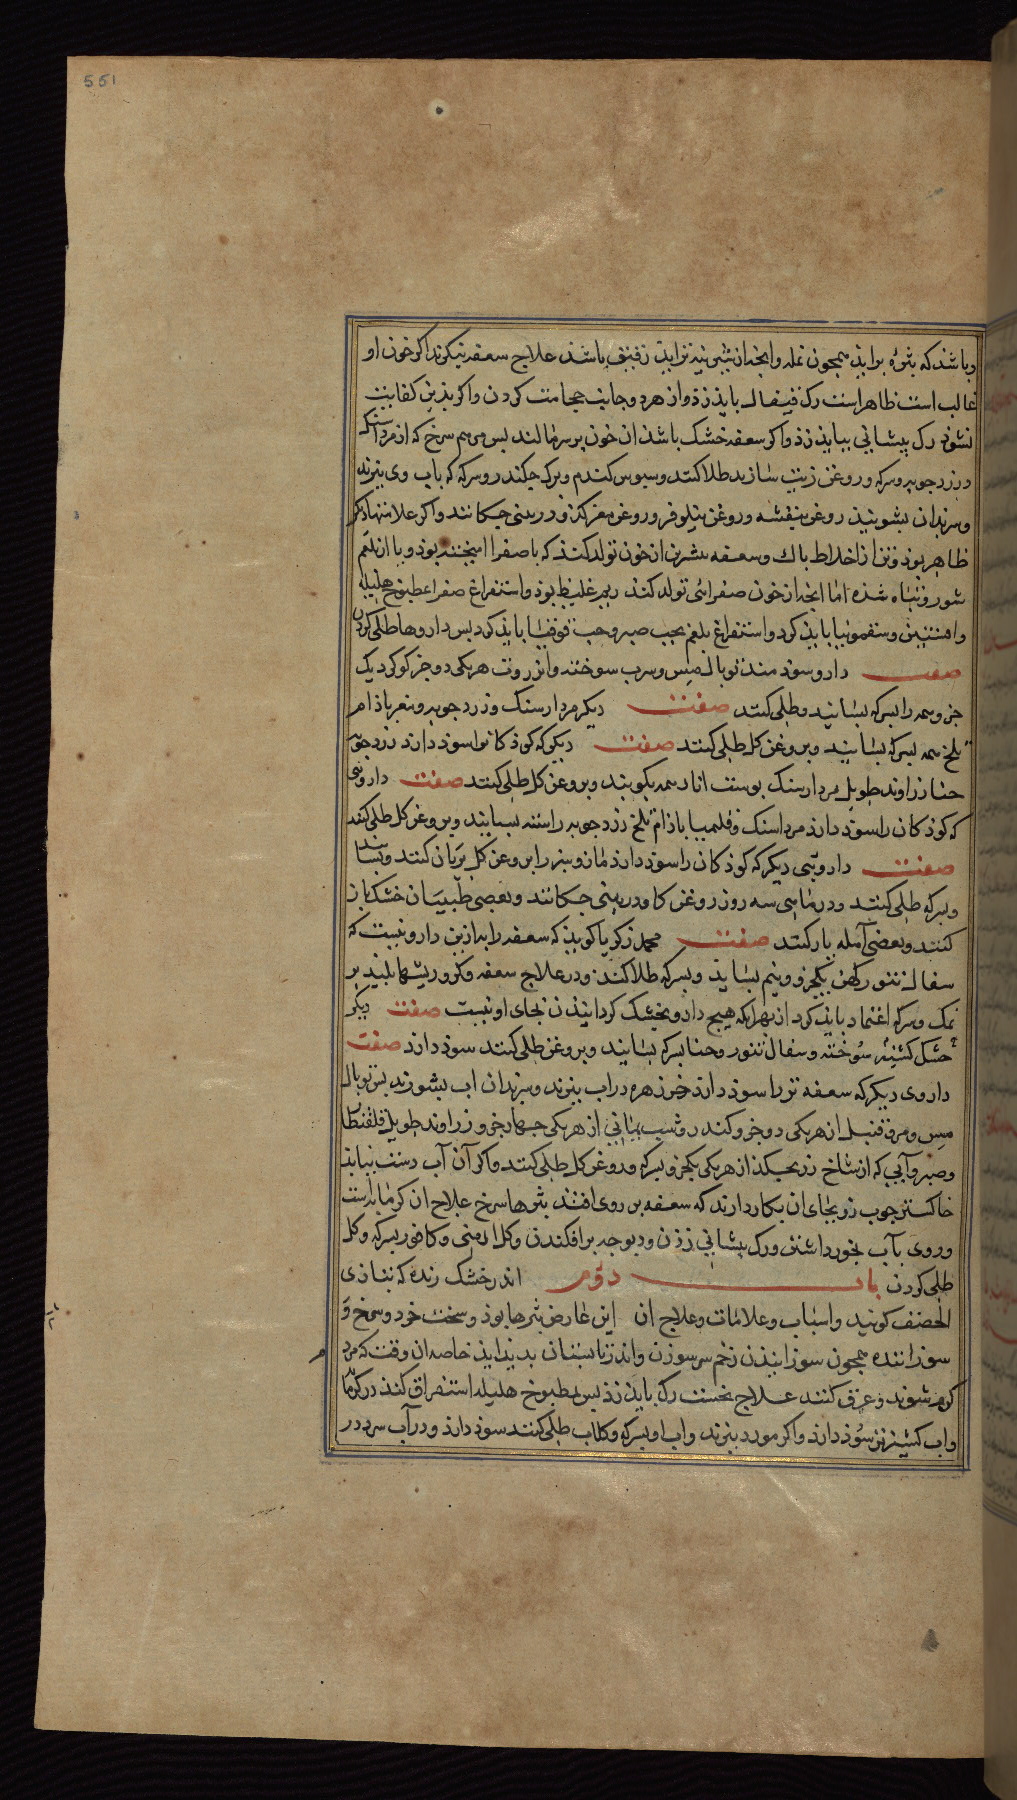 551
وباشد که بثوره برآید همچون نمله وآنچه از شبی نیز تراید رقیق باشد علاج سعفه بنگرند اگر خون او
غالب است ظاهر است رک قیفال باید زذ واز هر دو جانب حجامت کردن واکر بذین کفایت
نشوذ رک پیشانی بباید زذ واکر سعفه خشک باشذ ان خون بر سر مالند بس مرهم سرخ که از مرداسنک
و زردجوبه وسرکه وروغن زیت سازند طلا کنند وسبوس کندم وبرک جکندر وسرکه که باب وی بپزند
وسر بدان بشویند روغن بنفشه وروغن نیلوفر وروغن مغز کذو در بینی جکانند واکر علامتهاء دیکر
ظاهر بوذ وتن از اخلاط باک وسعفه بیشترین از خون تولد کند که با صفرا امیخته بوذ ویا از بلغم
شور وتباه شذه اما انچه از خون صفرائی تولد کند ریم غلیظ بوذ واستفراغ صفرا بمطبوخ هلیله
وافسنتین وسقمونیا باید کرد واستفراغ بلغم بحب صبر وحب قوقیا باید کرد بس داروها طلی کردن
صفت داروسوذمند توبال مس وسرب سوخته وانزروت هریکی دو جز کوکرد یک
جز وهمه را بسرکه بسایند وطلی کنند صفت دیکر مردارسنک وزردجوبه ومغز باذام
تلخ همه بسرکه بسایند وبروغن کل طلی کنند صفت دیکر که کوذکانرا سوذ دارد زردجوبه
حنا زراوند طویل مردارسنک بوست انار همه بکوبند وبروغن کل طلی کنند صفت داروئی
که کوذکان را سوذ دارذ مرداسنک وقلیمیا باذام تلخ زردجوبه راسته بسایند وبروغن کل طلی کنند
صفت داروئی دیکر که کوذکان را سوذ دارذ مازو سبز را بروغن کل بریان کنند وبسایند
وبسرکه طلی کنند ودر ماهی سه روز روغن کاو در بینی جکانند وبعضی طبیبان خشک بار
کنند وبعضی آمله بار کنند صفت محمد زکریا کویذ که سعفه را به ازین دارو نیست که
سفال تنور کهن یکجزو ونیم بساید وبسرکه طلا کند ودر علاج سعفه وکر وریشها بلید بر
نمک وسرکه اعتماد باید کرد از بهر انکه هیچ دارو بخشک کردانیذن بجای او نیست صفت دیکر
خشک کشنیز سوخته وسفال تنور وحنا بسرکه بسایند وبروغن طلی کنند سوذ دارذ صفت
داروی دیکر که سعفه تر را سوذ دارذ خرزهره در آب بپزند وسر بدان اب بشویند بس توبال
مس ومر وقنبیل از هریکی دو جز وکندر وشب یمانی از هریکی جهار جز وزراوند طویل وقلقنطار
وصبر وآبی که از شاخ رز بجکذ از هریکی یکجز وبسرکه وروغن کل طلی کنند واکر آن آب دست نیاید
خاکستر جوب رز بجای ان بکار دارند که سعفه بر روی افتد بثرها سرخ علاج ان کرمابه است
وروی بآب بخور داشتن ورک بیشانی زدن ودیوجه برافکندن وکل ارمنی وکافور بسرکه وکل
طلی کردن باب دوم اندر خشک رنده که بتازی
الحصف کویند واسباب وعلامات وعلاج ان این عارض بثرها بوذ وسخت خرد وسرخ و
سوزاننده همچون سوزانیذن زخم سر سوزن واندر تابستان بدید ایذ خاصه ان وقت که مردم
کرم شوند وعرق کنند علاج نخست رک باید زذ بس بمطبوخ هلیله استفراق کند در کرمابه
واب کشنیز تر سوذ دارذ واکر مورد بپزند واب او بسرکه وکلاب طلی کنند سوذ دارذ ودر آب سرد در